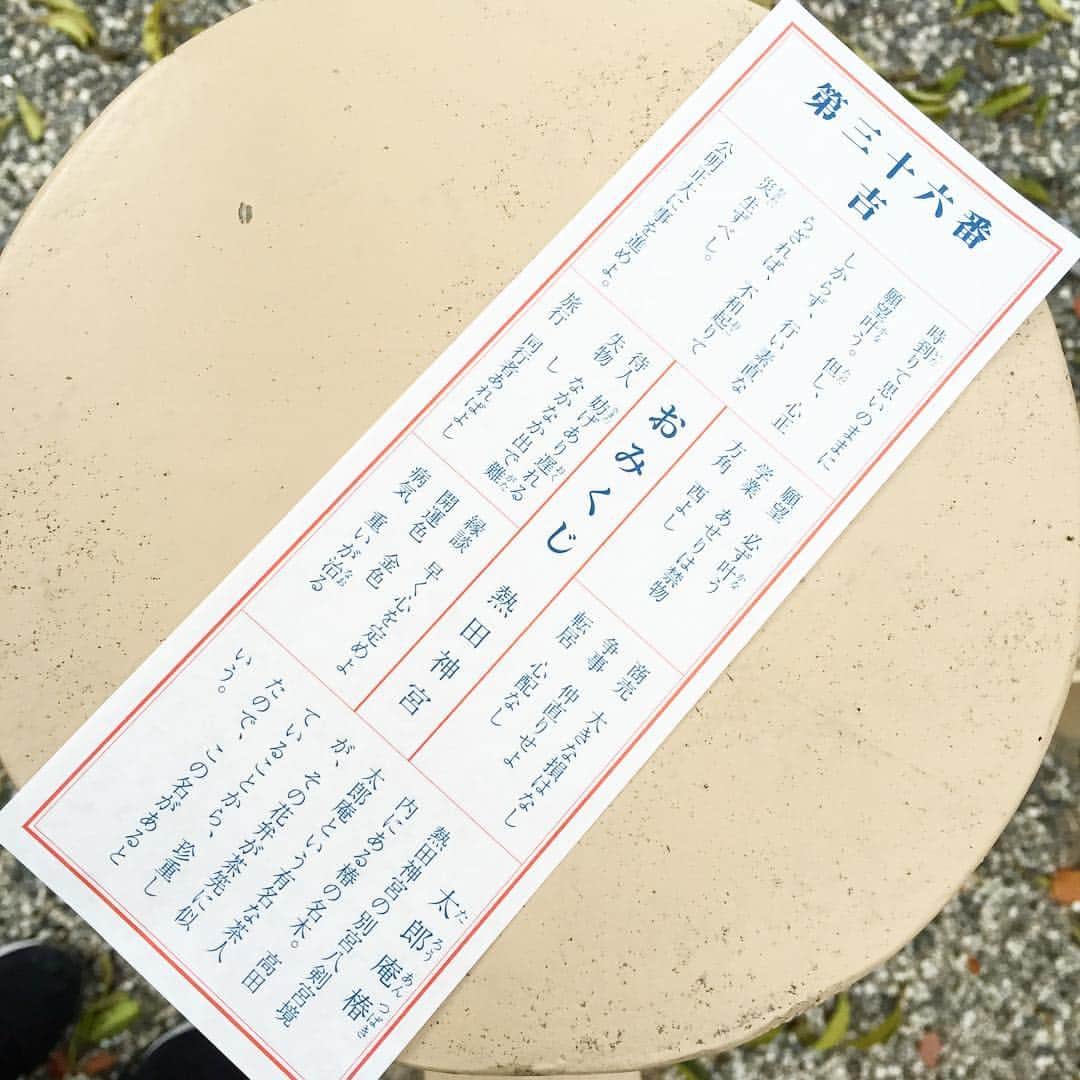 第三十六番
吉
時到りて思いのままに
願望叶う。但し、心正
しからず、行い素直な
らざれば、不和起りて
災生ずべし。
公明正大に事を進めよ。
願望 必ず叶う
学業 あせりは禁物
方角 西よし
商売 大きな損はなし
争事 仲直りせよ
転居 心配なし
おみくじ 熱田神宮
待人 妨げあり遅れる
失物 なかなか出で難
し
旅行 同行者あればよし
縁談 早く心を定めよ
開運色 金色
病気 重いが治る
たろうあんつばき
太郎庵椿
熱田神宮の別宮八剣宮境
内にある椿の名木。高田
太郎庵という有名な茶人
が、その花弁が茶筅に似
ていることから、珍重し
たので、この名があると
いう。